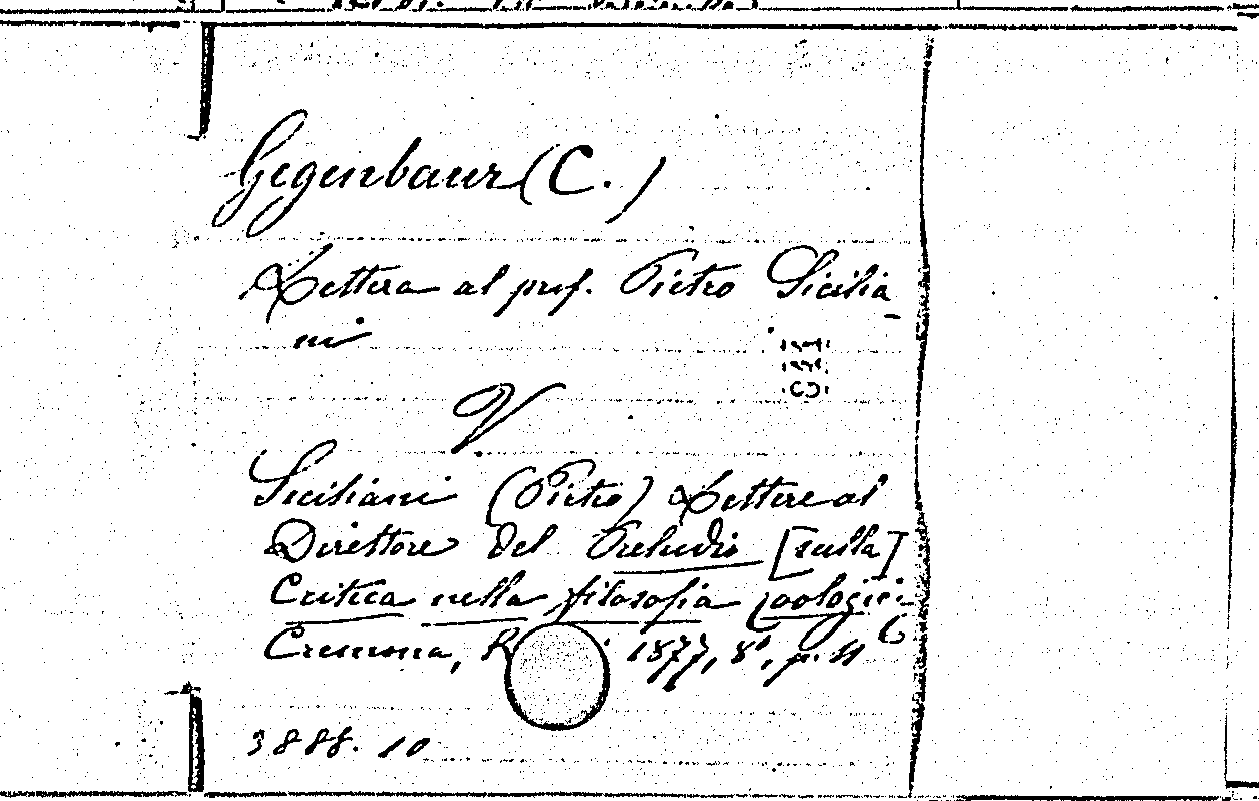 Gegenbaur (C.)
Lettera al prof. Pietro Sicilia
ni
V
Siciliani (Pietro) Lettere al
Direttore del Preludio [sulla]
Critica nella filosofia zoologi
Cremona, 1877, 8°, p.
3888. 10